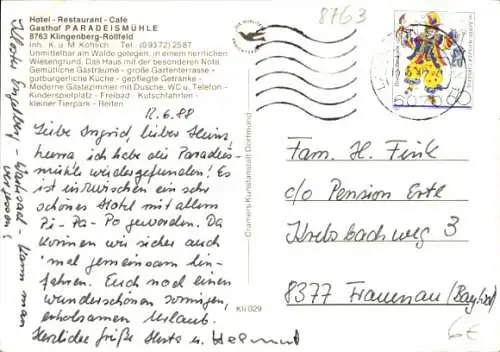 Hotel - Restaurant - Café
Gasthof PARADEISMÜHLE
8763 Klingenberg-Röllfeld
Inh. K. u. M. Köhlich Tel. (09372) 2587
Unmittelbar am Walde gelegen, in einem herrlichen
Wiesengrund. Das Haus mit der besonderen Note.
Gemütliche Gasträume - große Gartenterrasse -
gutbürgerliche Küche - gepflegte Getränke -
Moderne Gästezimmer mit Dusche, WC u. Telefon -
Kinderspielplatz - Freibad - Kutschfahrten -
kleiner Tierpark - Reiten
12.6.88
Liebe Ingrid, lieber Heinz,
hurra, ich habe die Paradeis-
mühle wiedergefunden! Es
ist inzwischen ein sehr
schönes Hotel mit allem
Pi-Pa-Po geworden. Da
können wir sicher auch
'mal gemeinsam hin-
fahren. Euch noch einen
wunderschönen sonnigen,
erholsamen Urlaub.
Herzliche Grüße Herta u. Helmut
Kloster Engelberg - Wallfahrt - kann man
Cramers Kunstanstalt Dortmund
Kli 029
8763
Fam. H. Fink
c/o Pension Ertl
Krebsbachweg 3
8377 Frauenau (Bay. Wald)
6€